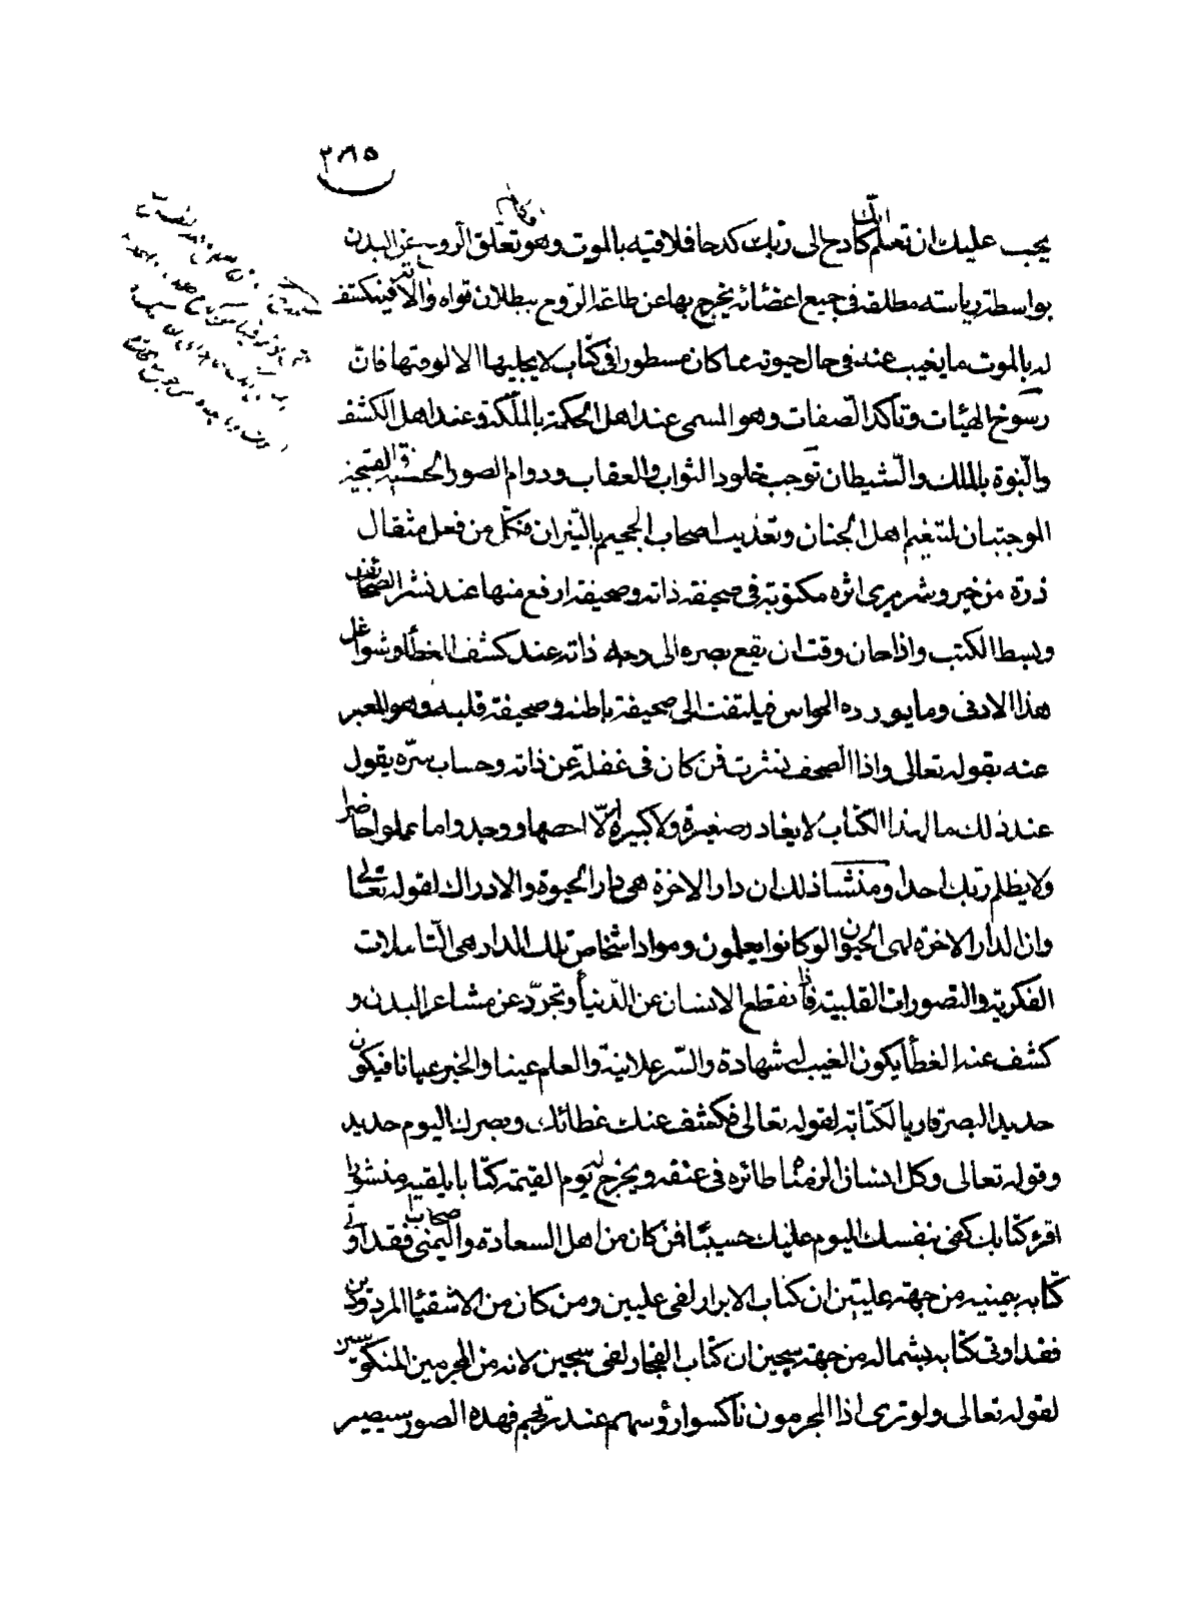 ٢٨٥
يجب عليك ان تعلم انك كادح الى ربك كدحا فلاقيه بالموت وهو تعلق الروح عن البدن
بواسطة رياسته مطلقه فى جميع اعضائه يخرج بها عن طاعة الروح ببطلان قواه والاته فينكشف
له بالموت ما يغيب عنه فى حال حيوته مما كان مسطورا فى كتاب لا يجليها الا لوقتها فان
رسوخ الهيئات وتأكد الصفات وهو المسمى عند اهل الحكمة بالملكة وعند اهل الكشف
والنبوة بالملك والشيطان توجب خلود الثواب والعقاب ودوام الصور الحسنة والقبيحة
الموجبتان لتنعيم اهل الجنان وتعذيب اصحاب الجحيم بالنيران فكل من فعل مثقال
ذرة من خير وشر يرى اثره مكتوبة فى صحيفة ذاته وصحيفة ارفع منها عند نشر الصحائف
وبسط الكتب واذا حان وقت ان يقع بصره الى وجه ذاته عند كشف الغطاء وشواغل
هذا الادنى وما يورده الحواس فيلتفت الى صحيفة باطنه وصحيفة قلبه وهو المعبر
عنه بقوله تعالى واذا الصحف نشرت فمن كان فى غفلة عن ذاته وحساب سره يقول
عند ذلك مال هذا الكتاب لا يغادر صغيرة ولا كبيرة الا احصها ووجدوا ما عملوا حاضرا
ولا يظلم ربك احدا ومنشأ ذلك ان دار الاخرة هى دار الحيوة والادراك لقوله تعالى
وان الدار الاخرة لهى الحيوان لو كانوا يعلمون ومواد اشخاص تلك الدار هى التأملات
الفكرية والتصورات القلبية فاذا نقطع الانسان عن الدنيا وتجرد عن مشاعر البدن و
كشف عنه الغطأ يكون الغيب له شهادة والسر علانية والعلم عينا والخبر عيانا فيكون
حديد البصر قاريا لكتابه لقوله تعالى فكشف عنك غطائك وبصرك اليوم حديد
وقوله تعالى وكل انسان الزمناه طائره فى عنقه ويخرج له يوم القيمة كتابا يلقيه منشورا
اقرء كتابك كفى بنفسك اليوم عليك حسيبا فمن كان من اهل السعادة واصحاب اليمنى فقد اوتى
كتابه بيمينه من جهة عليين ان كتاب الابرار لفى عليين ومن كان من الاشقيا المردودين
فقد اوتى كتابه بشماله من جهة سجين ان كتاب الفجار لفى سجين لانه من المجرمين المنكوسين
لقوله تعالى ولو ترى اذا المجرمون ناكسوا رؤسهم عند ربهم فهذه الصور سيصير